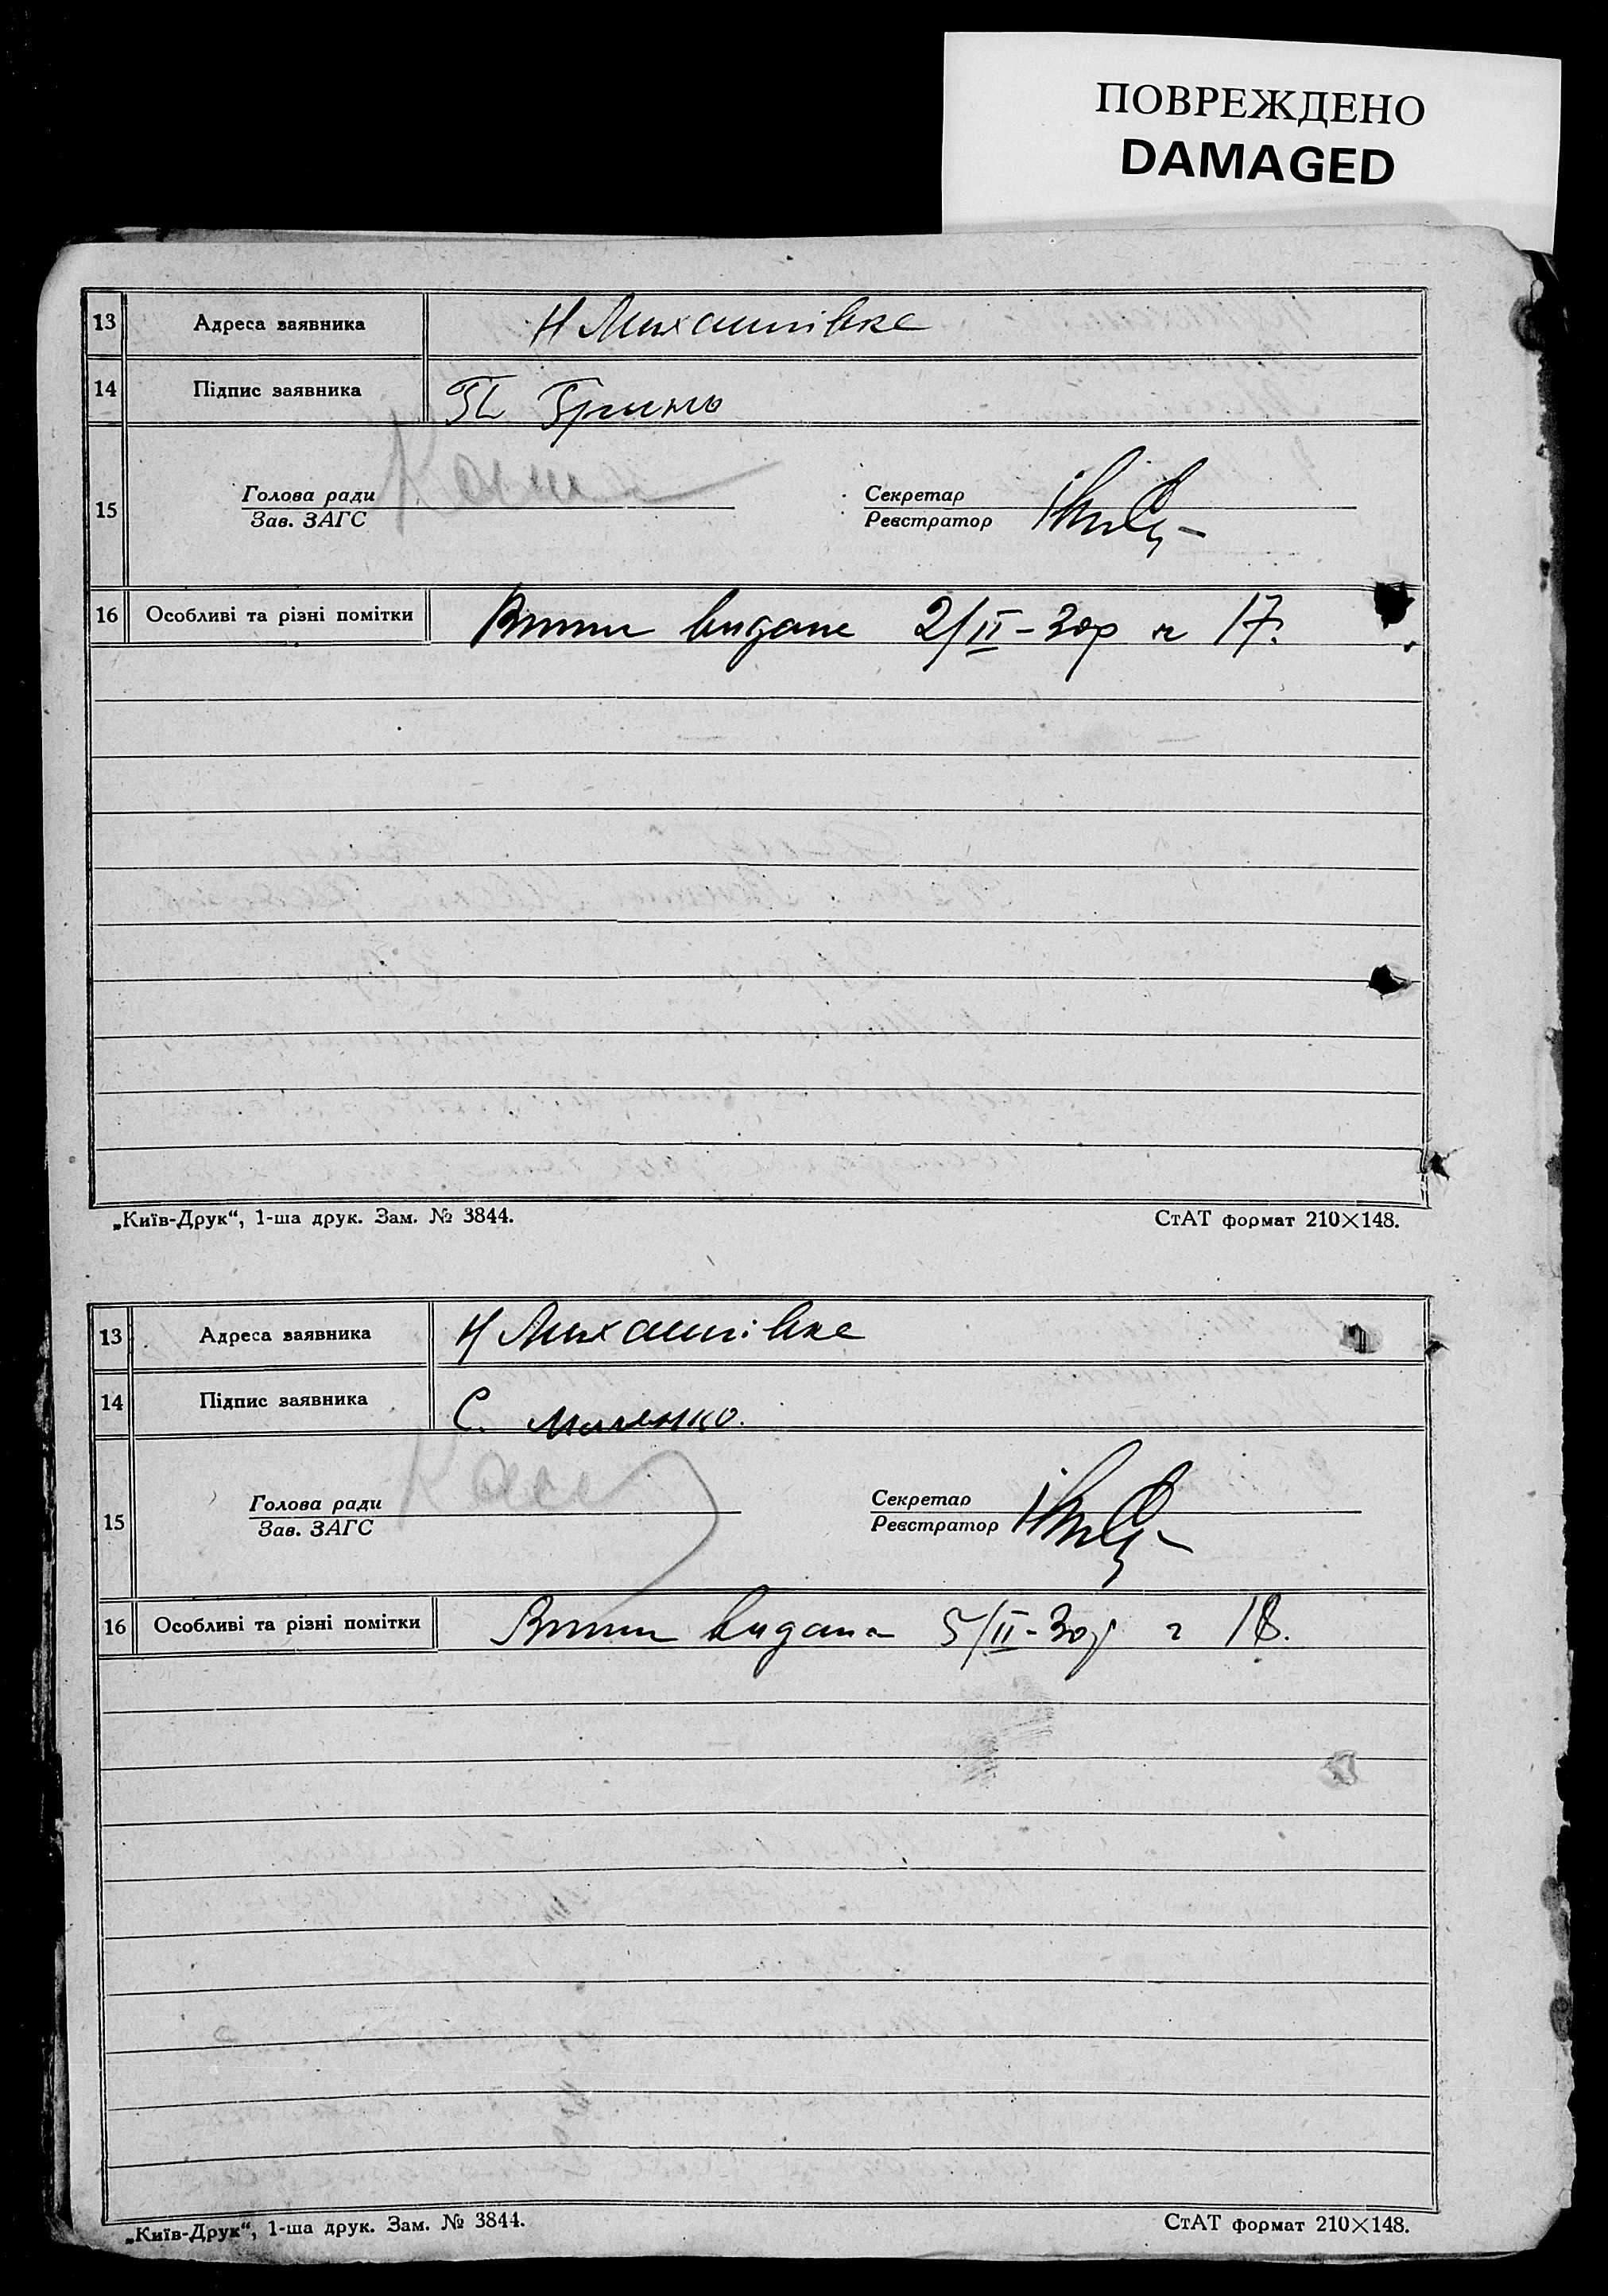 ПОВРЕЖДЕНО
DAMAGED
13 Адреса заявника Н Михайлівка
14 Підпис заявника П Гришко
15 Голова ради Секретар
Зав. ЗАГС Реєстратор
16 Особливі та різні помітки видане 2/II-30р № 17.
„Київ-Друк“, 1-ша друк. Зам. № 3844. СтАТ формат 210×148.
13 Адреса заявника Н Михайлівка
14 Підпис заявника С.
15 Голова ради Секретар
Зав. ЗАГС Реєстратор
16 Особливі та різні помітки видана 5/II-30р 18.
„Київ-Друк“, 1-ша друк. Зам. № 3844. СтАТ формат 210×148.